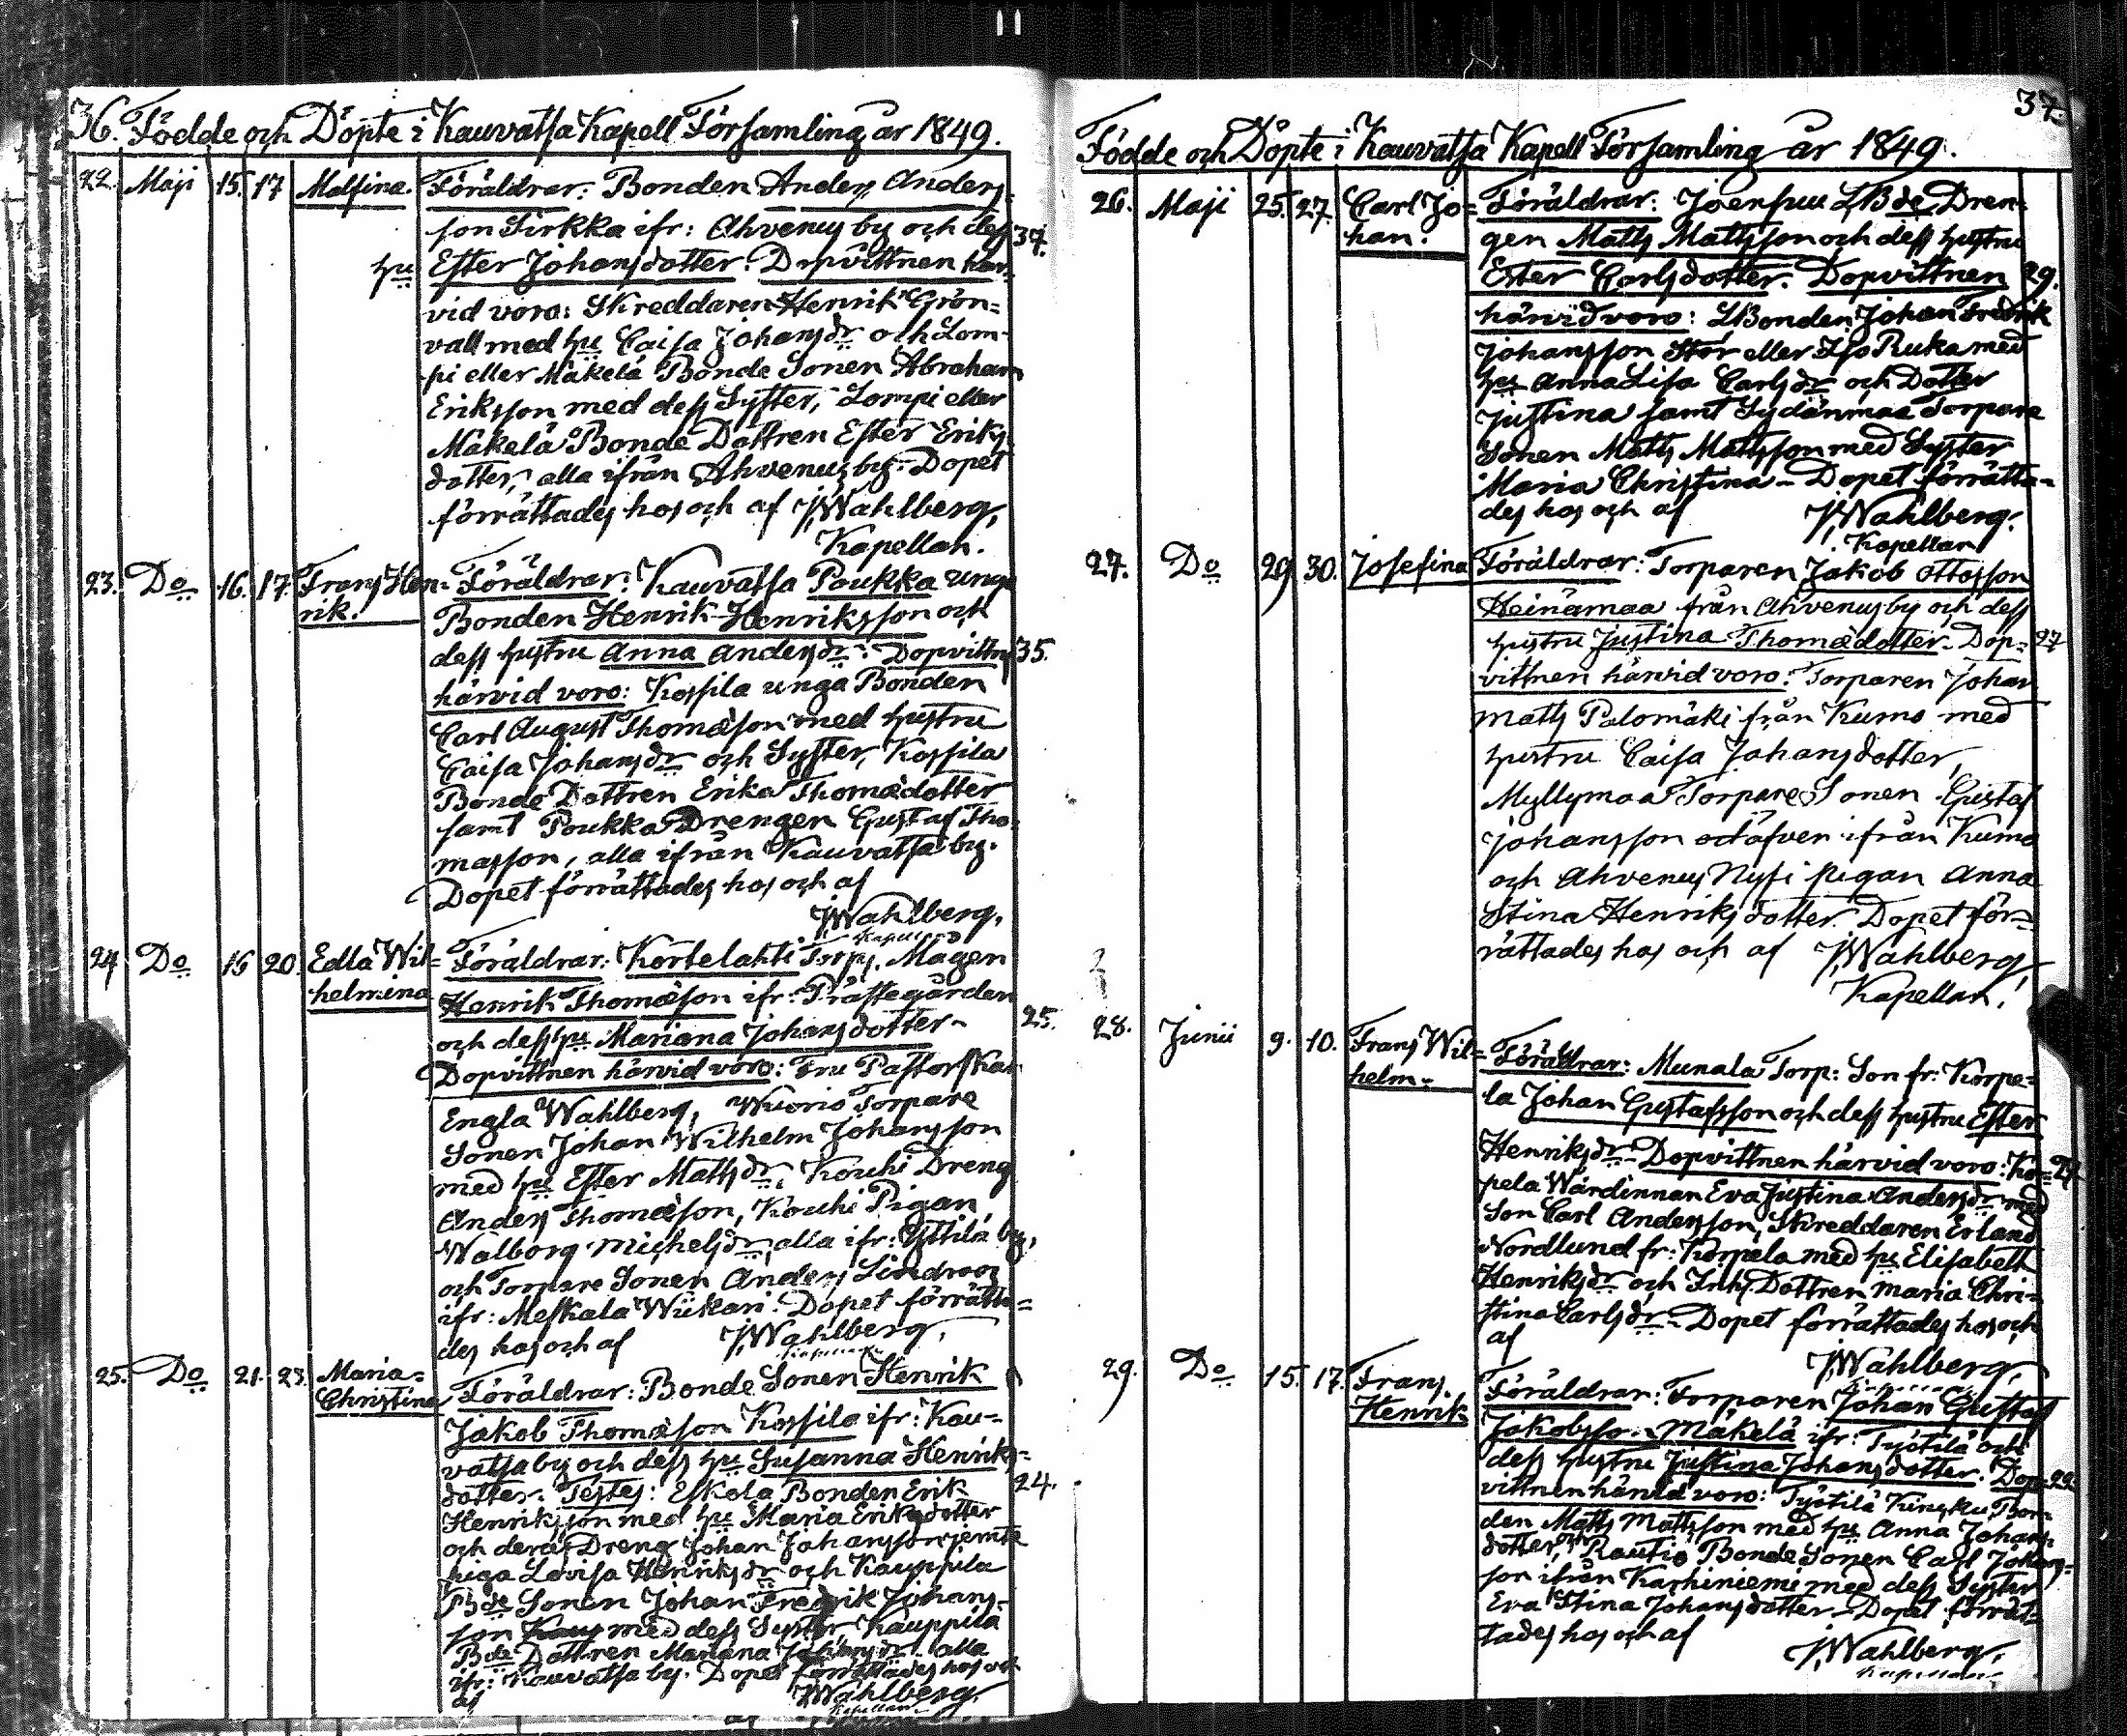 36. Födde och Döpte i Kauvatsa Kapell Församling år 1849.
22. Maji 15. 17 Malfina. Föräldrar: Bonden Anders Anders-
son Tirkka ifr: Ahvenus by och dess 37.
hu Ester Johansdotter. Dopvittnen här-
vid voro: Skreddaren Henrik Grön-
vall med hu Caisa Johansdr och Lom-
pi eller Mäkelä Bonde Sonen Abraham
Eriksson med dess Syster, Lompi eller
Mäkelä Bonde Dottren Ester Eriks-
dotter, alla ifrån Ahvenus by. Dopet
förrättades hos och af J. Wahlberg,
Kapellan.
23. Do 16. 17. Frans Hen- Föräldrar: Kauvatsa Poukka unge
rik. Bonden Henrik Henriksson och
dess hustru Anna Andersdr. Dopvittn 35.
härvid voro: Kossila unga Bonden
Carl August Thomæson med hustru
Caisa Johansdr och Syster, Kossila
Bonde Dottren Erika Thomædotter
samt Poukka Drengen Gustaf Tho-
masson, alla ifrån Kauvatsa by.
Dopet förrättades hos och af
J. Wahlberg,
Kapellan
24 Do 15 20. Edla Wil- Föräldrar: Kortelahti Torps Mågen
helmina Henrik Thomæson ifr: Prästegården
och dess hu Mariana Johansdotter- 25.
Dopvittnen härvid voro: Fru Pastorskan
Engla Wahlberg, Wuorio Torpare
Sonen Johan Wilhelm Johansson
med hu Ester Matsdr, Kouhi Dreng
Anders Thomæson, Kouhi Pigan
Walborg Michelsdr, alla ifr: Yttilä by,
och Torpare Sonen Anders Lindroos
ifr: Meskala Wiikari. Dopet förrätta-
des hos och af J. Wahlberg,
Kapellan
25. Do 21. 23. Maria- Föräldrar: Bonde Sonen Henrik
Christina Jakob Thomæson Kossila ifr: Kau-
vatsa by och dess hu Susanna Henriks-
dotter. Testes: Eskola Bonden Erik 24.
Henriksson med hu Maria Eriksdotter
och deras Dreng Johan Johansson jemte
piga Lovisa Henriksdr och Kauppila
Bde Sonen Johan Fredrik Johans-
son med dess Syster, Kauppila
Bde Dottren Mariana Johansdr alla
ifr: Kauvatsa by. Dopet förrättades hos och
af J. Wahlberg,
Kapellan
37.
Födde och Döpte i Kauvatsa Kapell Församling år 1849.
26. Maji 25. 27. Carl Jo- Föräldrar: Joensuu LBde Dren-
han. gen Matts Mattsson och dess hustru
Ester Carlsdotter. Dopvittnen 29.
härvid voro: LBonden Johan Fredrik
Johansson Stor eller Iso Ruka med
hu Anna Lisa Carlsdr och Dotter
Justina samt Sydänmaa Torpare
Sonen Matts Mattsson med Syster
Maria Christina- Dopet förrätta-
des hos och af J. Wahlberg.
Kapellan
27. Do 29 30. Josefina Föräldrar: Torparen Jakob Ottosson
Heinämaa från Ahvenus by och dess
hustru Justina Thomædotter- Dop- 27
vittnen härvid voro: Torparen Johan
Matts Palomäki från Kumo med
hustru Caisa Johansdotter,
Myllymaa Torpare Sonen Gustaf
Johansson ifrån Kumo
och Ahvenus Nysi pigan Anna
Stina Henriksdotter. Dopet för-
rättades hos och af J. Wahlberg
Kapellan.
28. Junii 9. 10. Frans Wil- Föräldrar: Munala Torp: Son fr: Korpe-
helm- la Johan Gustafsson och dess hustru Ester
Henriksdr- Dopvittnen härvid voro: Kor- 27
pela Wärdinnan Eva Justina Andersdr med
Son Carl Andersson, Skreddaren Erland
Nordlund fr: Korpela med hu Elisabeth
Henriksdr och Inh. Dottren Maria Chri-
stina Carlsdr- Dopet förrättades hos och
af
J. Wahlberg,
Kapellan
29. Do 15. 17. Frans Föräldrar: Torparen Johan Gustaf
Henrik Jakobsson Mäkelä ifr: Työtilä och
dess hustru Justina Johansdotter. Dop- 22
vittnen härvid voro: Työtilä Bon-
den Matts Mattsson med hu Anna Johans-
dotter, Rautio Bonde Sonen Carl Johans-
son ifrån Karhiniemi med dess Syster
Eva Stina Johansdotter- Dopet förrät-
tades hos och af J. Wahlberg,
Kapellan